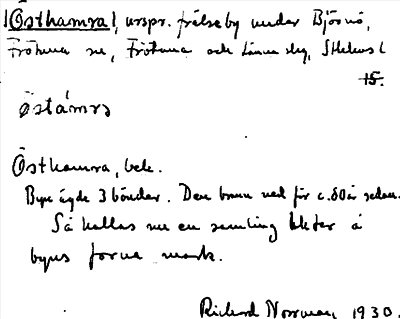 Östhamra, urspr. frälseby under Björnö,
Frötuna sn, Frötuna och Länna skg, Sthlms l
15.
Östámra
Östhamra, bebe.
Byn ägde 3 bönder. Den brann ned för c. 80 år sedan.
Så kallas nu en samling tomter å
byns forna mark.
Rickard Norrman 1930.